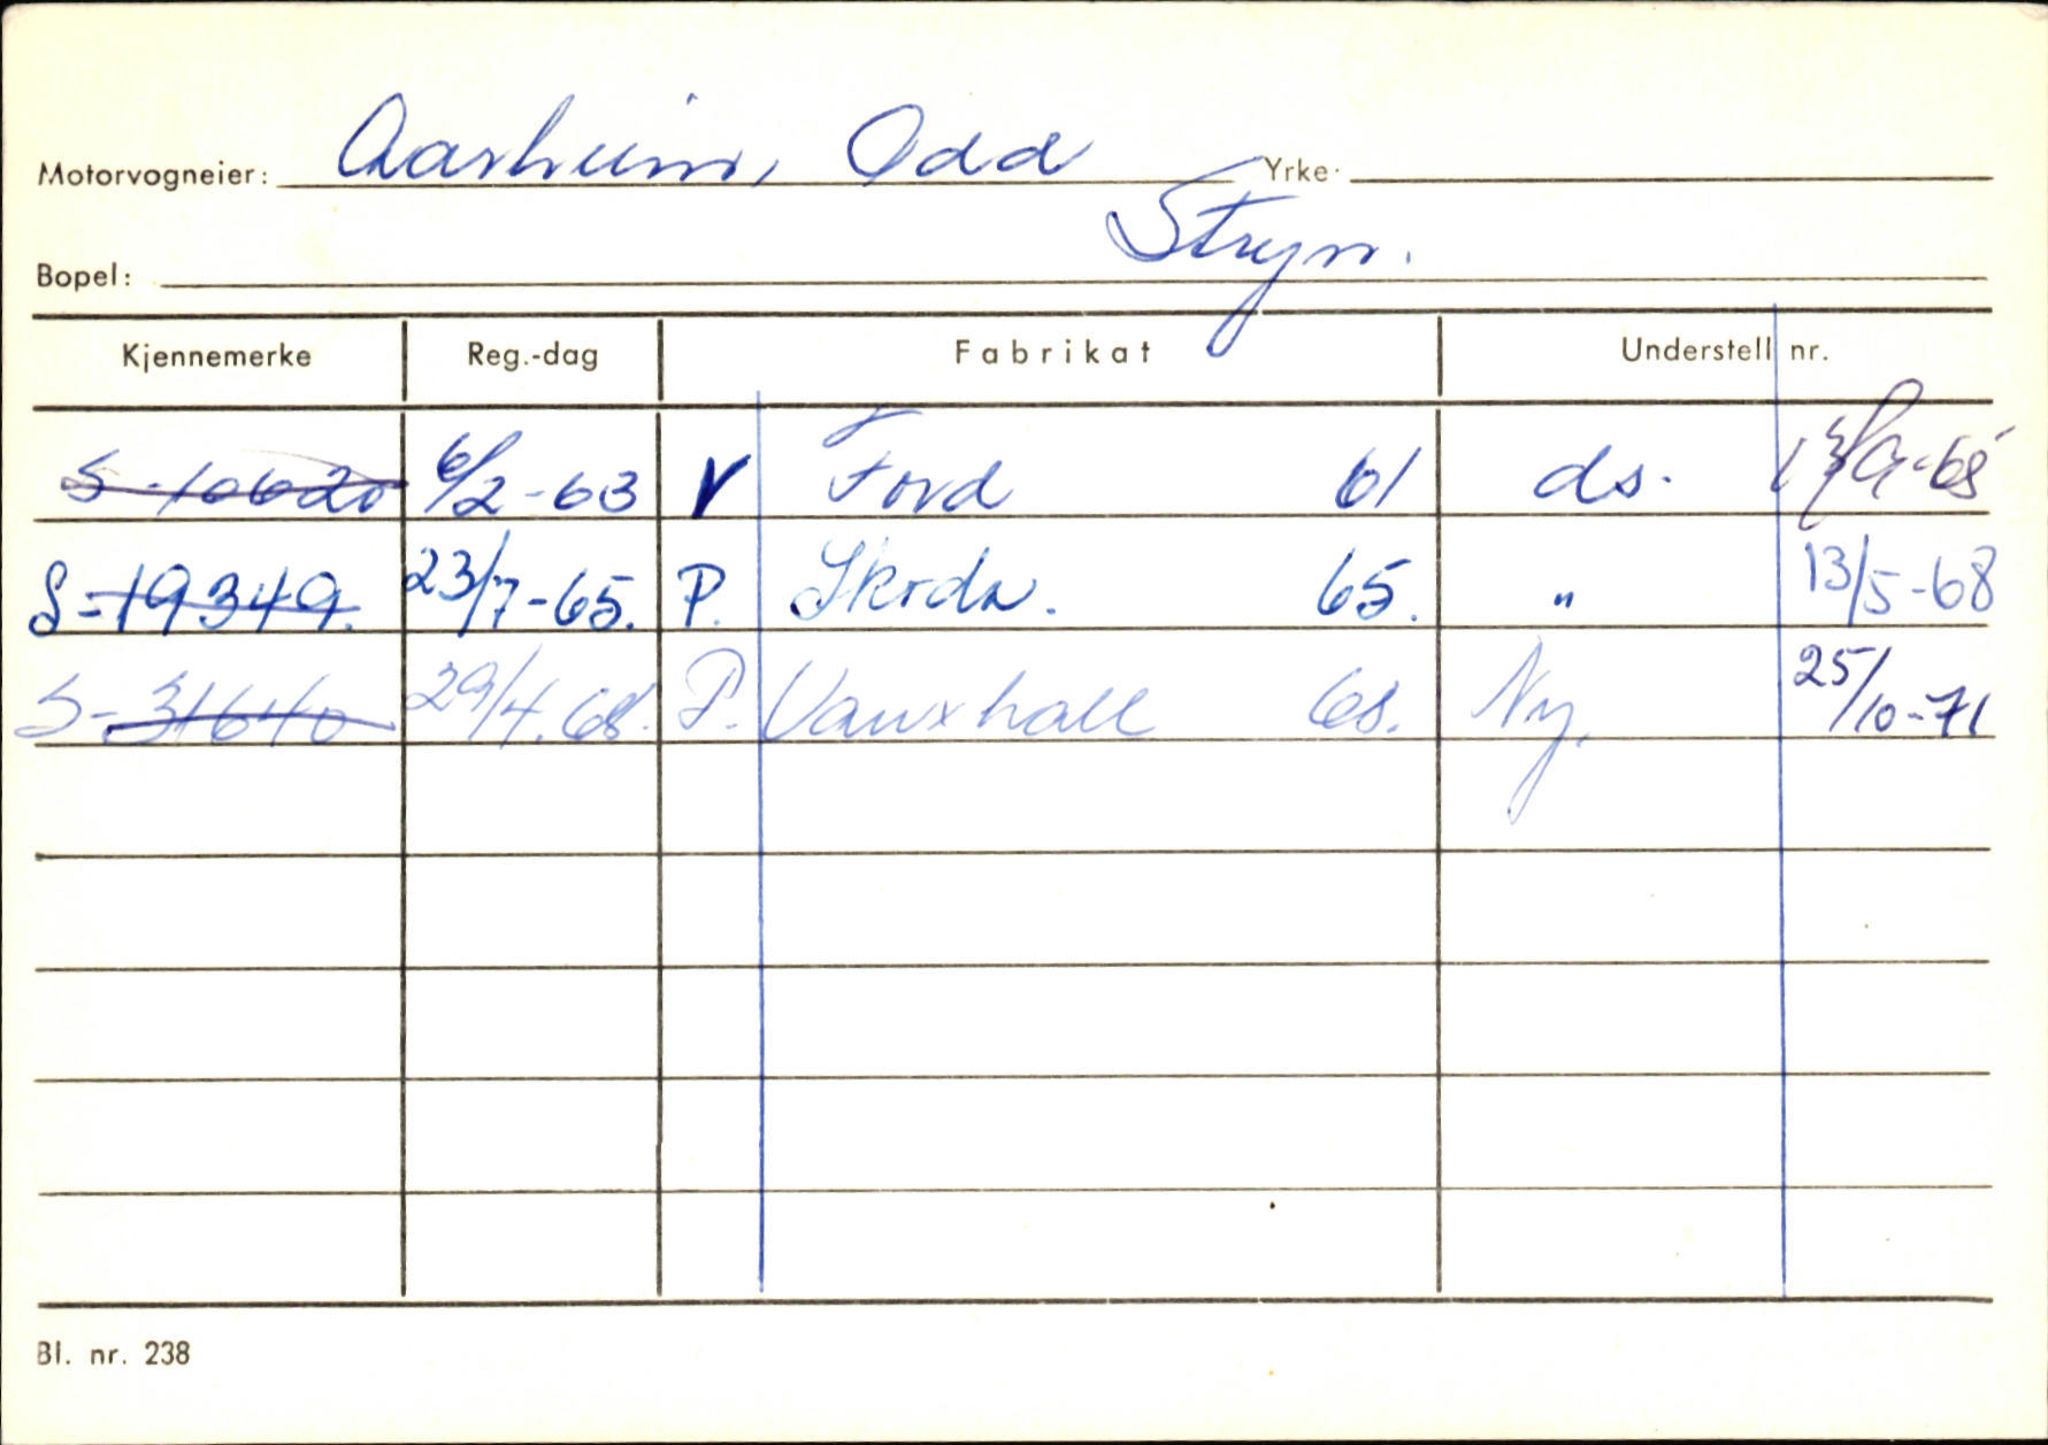 Motorvogneier: Aarheim, Odd Yrke:
Bopel: Stryn.
Kjennemerke Reg.-dag Fabrikat Understell nr.
S-10620 6/2-63 V Ford 61 ds. 13/9-65
S-19349. 23/7-65. P. Skoda. 65. " 13/5-68
S-31640 29/4.68. P. Vauxhall 68. Ny. 25/10-71
Bl. nr. 238